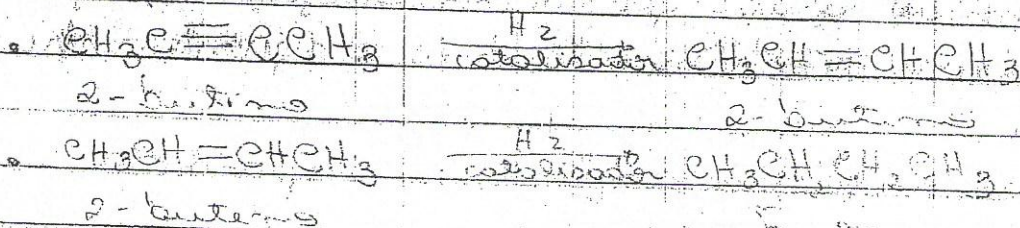 • CH₃C≡CCH₃ H₂ catalisador CH₃CH=CHCH₃
2-butino 2-buteno
• CH₃CH=CHCH₃ H₂ catalisador CH₃CH₂CH₂CH₃
2-buteno